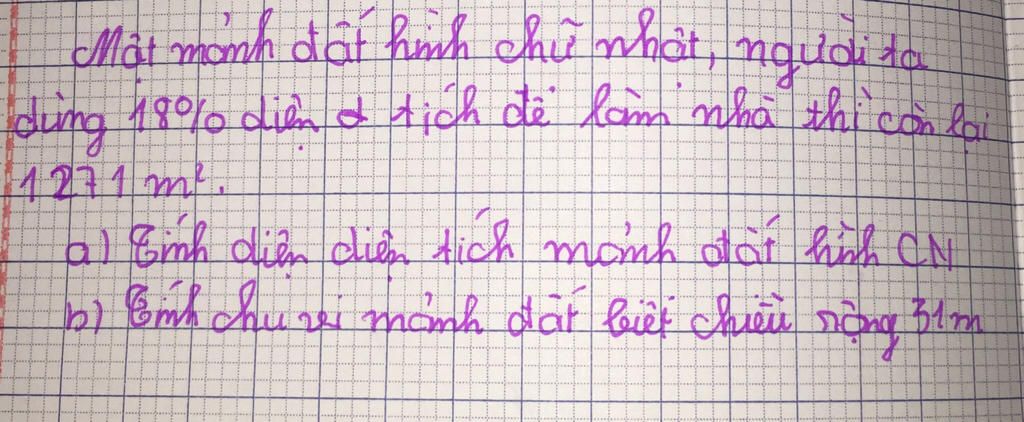 Một mảnh đất hình chữ nhật, người ta
dùng 18% diện tích để làm nhà thì còn lại
1271 m².
a) Tính diện diện tích mảnh đất hình CN
b) Tính chu vi mảnh đất biết chiều rộng 31m